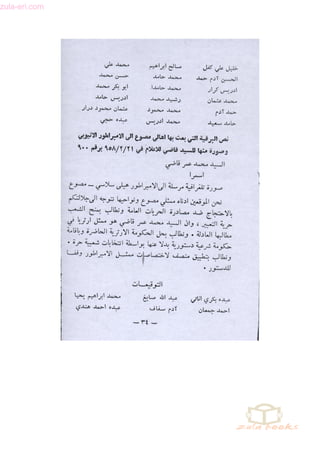 zula-eri.com
خليل علي كفل صالح ابراهيم محمد علي
الحسن آدم حمد محمد حامد حسن محمد
ادريس كرار محمد حامدا ابو بكر محمد
محمد عثمان رشيد محمد ادريس حامد
حمد آدم محمد محمود عثمان محمود درار
حامد سعيد محمد ادريس عبده حجي
نص البرقية التي بعث بها اهالي مصوع الى الامبراطور الاثيوبي
وصورة منها للسيد قاضي للاعلام في ٩٥٨/٢/٢١ برقم ٩٠٠
السيد محمد عمر قاضي
اسمرا
صورة تلغرافية مرسلة الى الامبراطور هيلى سلاسي – مصوع
نحن الموقعين ادناه ممثلي مصوع ونواحيها نتوجه الى جلالتكم
بالاحتجاج ضد مصادرة الحريات العامة ونطالب بمنح الشعب
حرية التعبير ، وان السيد محمد عمر قاضي هو ممثل ارتريا في
مطالبها العادلة ٠ ونطالب بحل الحكومة الارترية الحاضرة وباقامة
حكومة شرعية دستورية بدلا عنها بواسطة انتخابات شعبية حرة ٠
ونطالب بتطبيق منصف لاختصاصات ممثل الامبراطور وفقا
للدستور ٠
التوقيعات
عبده بكري الثاني عبد الله صايغ محمد ابراهيم يحيا
احمد جمعان آدم سقاف عبده احمد هندي
— ٣٤ —
zula books